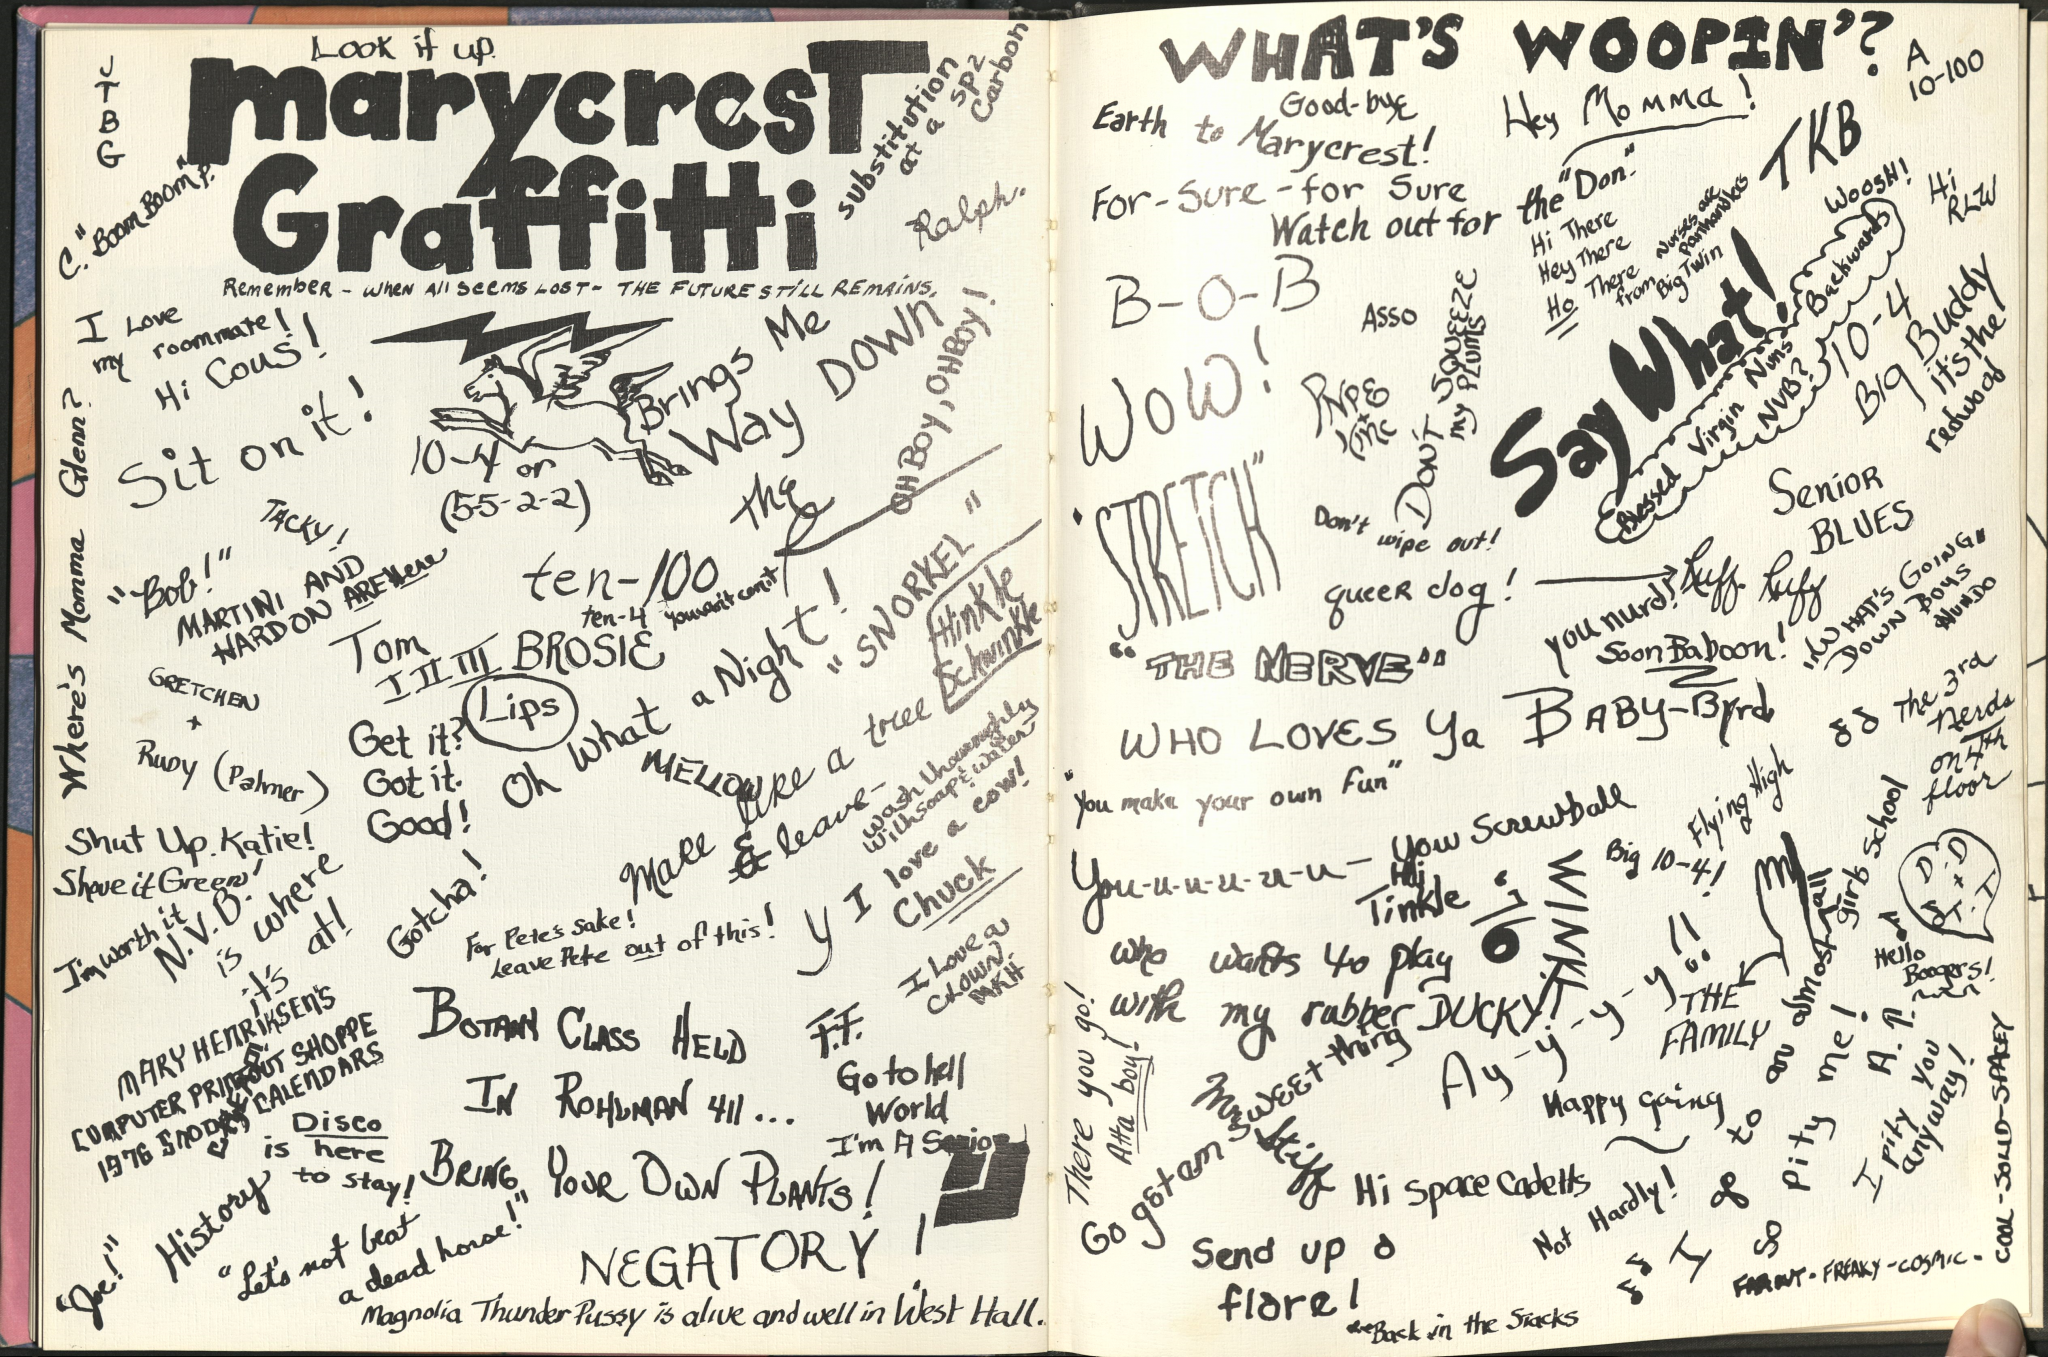 Look it up.
J
T
B
G
marycresT
Graffitti
substitution
at a
SP2
Carbon
C. "BOOM BOOM" P.
Ralph.
Remember - when all seems lost - THE FUTURE STILL REMAINS.
I Love
my roommate!
Hi Cous!
Brings Me
Way DOWN
OH BOY, OH BOY!
Sit on it!
10-4 or
(5-5-2-2)
Where's Momma Glenn?
TACKY!
"Bob!"
MARTINI AND
HARDON ARE Here
the
ten-100
ten-4 you want con't
Tom
I II III BROSIE
"SNORKEL"
Hinkle
Schwinkle
GRETCHEN
+
Rudy (Palmer)
Lips
Get it?
Got it.
Good!
Oh What a Night!
MELLOW
Make like a tree
& leave-
Wash thoroughly
with soap & water
Shut Up. Katie!
Shove it Green!
I'm worth it
N.V.B.
is where
it's at!
Gotcha!
Y I love a cow!
Chuck
For Pete's Sake!
Leave Pete out of this!
I Love a
CLOWN
MKH
MARY HENRIKSEN'S
COMPUTER PRINTOUT SHOPPE
1976 SNOOPY CALENDARS
BOTANY CLASS HELD
IN ROHLMAN 411...
BRING YOUR OWN PLANTS!
F.F.
Go to hell
World
I'm A Senior
Disco
is here
to stay!
History
"Let's not beat
a dead horse!"
"Joe!"
NEGATORY!
Magnolia Thunder Pussy is alive and well in West Hall.
WHAT'S WOOPIN'?
A
10-100
Earth to
Good-bye
Marycrest!
Hey Momma!
For-Sure-for Sure
Watch out for the "Don."
TKB
WOOSH!
Hi
RLW
Hi There
Hey There
Ho There
Nurses are
panhandlers
from Big Twin
B-O-B
Asso
DON'T SQUEEZE
my PLUMS
Say What!
Blessed Virgin Nuns
NVB? Backwards
10-4
Big Buddy
it's the
redwood
WOW!
"STRETCH"
Don't wipe out!
Senior
BLUES
queer dog!
Ruff Ruff
you nurd!
Soon Baboon!
"WHAT'S GOING"
DOWN BOYS
NUNDO
"THE NERVE"
WHO LOVES Ya BABY-Byrd
The 3rd
nerds
on 4th
floor
"You make your own fun"
You-u-u-u-u-u- You Screwball
Flying High
Big 10-4!
Hi
Tinkle
WINK!
who wants to play
with my rubber DUCKY!
Ay-y-y-y-y!!
THE
FAMILY
D
D + D
T.T
Hello
Boogers!
There you go!
Atta boy!
Go get am sweet thing
Mr. Stiff
Happy going
I go to an almost all girls school
So pity me!
A.P.
I pity you
anyway!
Hi Space Cadetts
Not Hardly!
Send up a
flare!
Back in the Stacks
FAR OUT - FREAKY - COSMIC -
COOL - SOLID - SPACEY